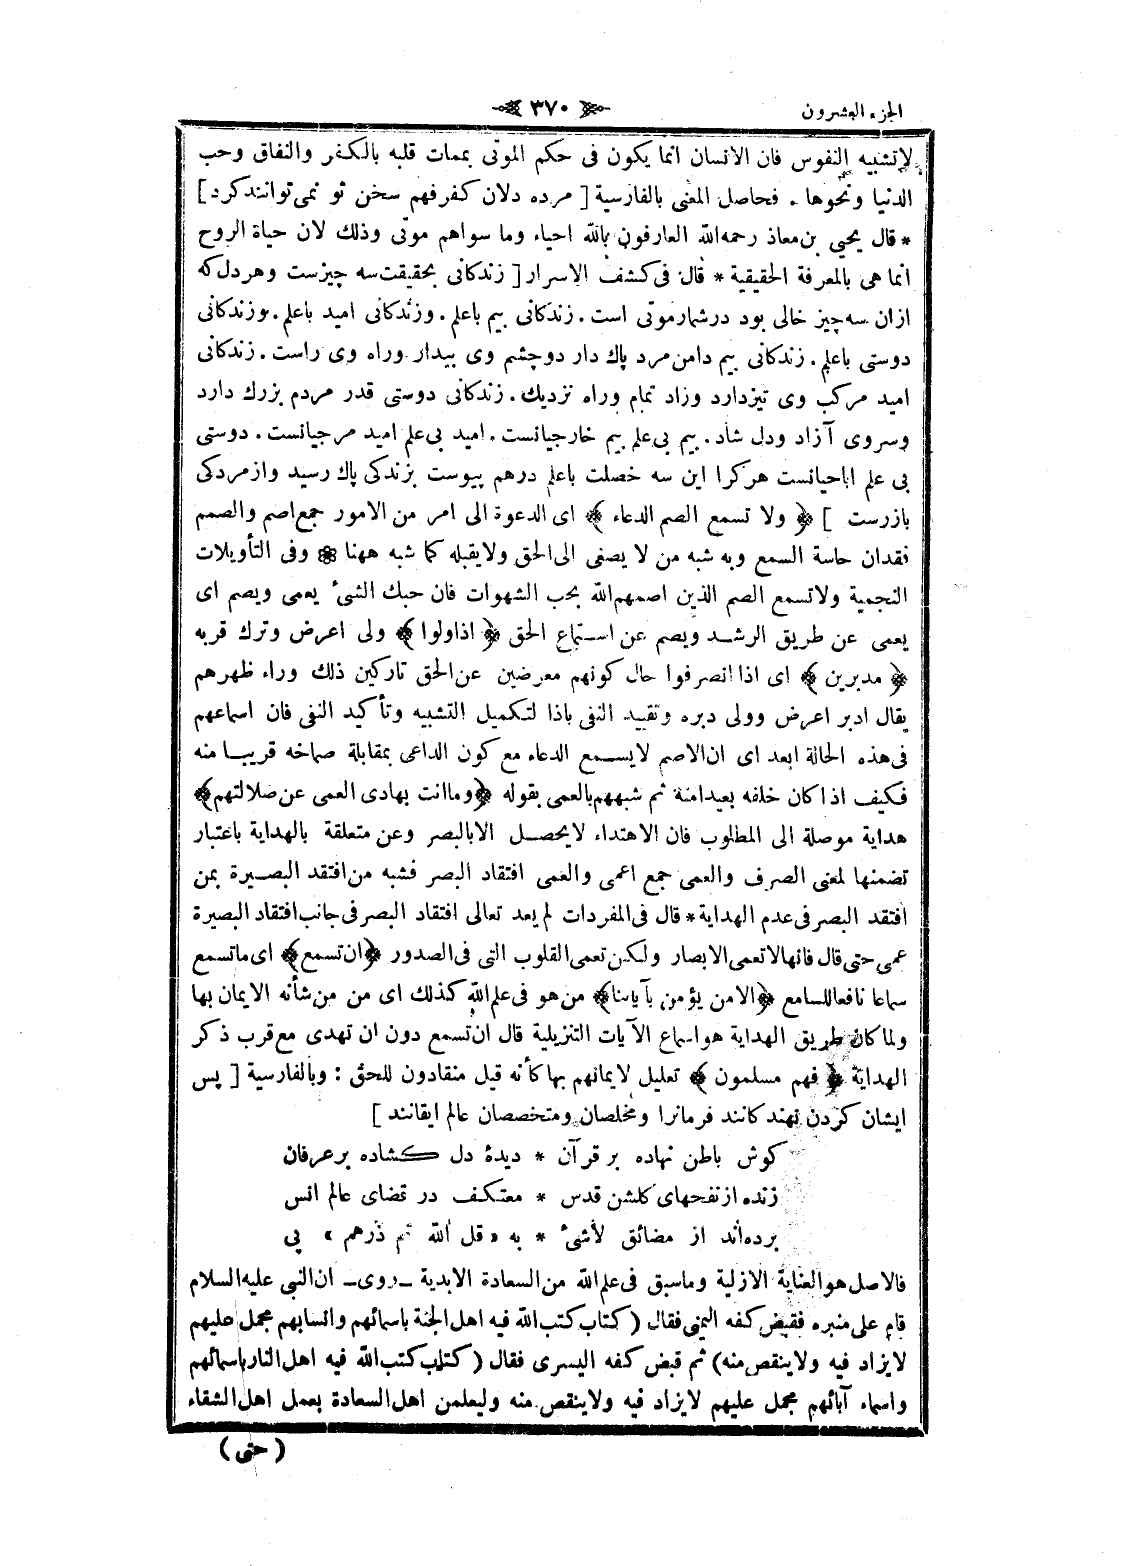 الجزء العشرون
٣٧٠
لاتشبيه النفوس فان الانسان انما يكون فى حكم الموتى بممات قلبه بالكفر والنفاق وحب
الدنيا ونحوها . فحاصل المعنى بالفارسية [ مرده دلان كفرفهم سخن تو نمى توانندكرد ]
* قال يحيى بن معاذ رحمه الله العارفون بالله احياء وما سواهم موتى وذلك لان حياة الروح
انما هى بالمعرفة الحقيقية * قال فى كشف الاسرار [ زندكانى بحقيقت سه چيزست وهردل كه
ازان سه چيز خالى بود درشمارموتى است . زندكانى بيم باعلم . وزندكانى اميد باعلم . وزندكانى
دوستى باعلم . زندكانى بيم دامن مرد پاك دار دوچشم وى بيدار وراه وى راست . زندكانى
اميد مركب وى تيزدارد وزاد تمام وراه نزديك . زندكانى دوستى قدر مردم بزرك دارد
وسروى آزاد ودل شاد . بيم بى علم بيم خارجيانست . اميد بى علم اميد مرجيانست . دوستى
بى علم اباحيانست هركرا اين سه خصلت باعلم درهم پيوست بزندكى پاك رسيد وازمردكى
بازرست ] ﴿ ولا تسمع الصم الدعاء ﴾ اى الدعوة الى امر من الامور جمع اصم والصمم
فقدان حاسة السمع وبه شبه من لا يصغى الى الحق ولايقبله كما شبه ههنا ❁ وفى التأويلات
النجمية ولاتسمع الصم الذين اصمهم الله بحب الشهوات فان حبك الشئ يعمى ويصم اى
يعمى عن طريق الرشد ويصم عن استماع الحق ﴿ اذاولوا ﴾ ولى اعرض وترك قربه
﴿ مدبرين ﴾ اى اذا انصرفوا حال كونهم معرضين عن الحق تاركين ذلك وراء ظهرهم
يقال ادبر اعرض وولى دبره وتقييد النفى باذا لتكميل التشبيه وتأكيد النفى فان اسماعهم
فى هذه الحالة ابعد اى ان الاصم لايسمع الدعاء مع كون الداعى بمقابلة صماخه قريبا منه
فكيف اذا كان خلفه بعيدامنه ثم شبههم بالعمى بقوله ﴿ وما انت بهادى العمى عن ضلالتهم ﴾
هداية موصلة الى المطلوب فان الاهتداء لايحصل الابالبصر وعن متعلقة بالهداية باعتبار
تضمنها لمعنى الصرف والعمى جمع اعمى والعمى افتقاد البصر فشبه من افتقد البصيرة بمن
افتقد البصر فى عدم الهداية * قال فى المفردات لم يعد تعالى افتقاد البصر فى جانب افتقاد البصيرة
عمى حتى قال فانها لاتعمى الابصار ولكن تعمى القلوب التى فى الصدور ﴿ ان تسمع ﴾ اى ماتسمع
سماعا نافعا للسامع ﴿ الامن يؤمن بآياتنا ﴾ من هو فى علم الله كذلك اى من من شأنه الايمان بها
ولما كان طريق الهداية هو اسماع الآيات التنزيلية قال ان تسمع دون ان تهدى مع قرب ذكر
الهداية ﴿ فهم مسلمون ﴾ تعليل لايمانهم بها كأنه قيل منقادون للحق : وبالفارسية [ پس
ايشان كردن نهند كانند فرمانرا ومخلصان ومتخصصان عالم ايقانند ]
كوش باطن نهاده بر قرآن * ديدۀ دل كشاده بر عرفان
زنده از نفحهاى كلشن قدس * معتكف در قضاى عالم انس
برده اند از مضائق لأشئ * به « قل الله ثم ذرهم » پى
فالاصل هو العناية الازلية وماسبق فى علم الله من السعادة الابدية ـ روى ـ ان النبى عليه السلام
قام على منبره فقبض كفه اليمنى فقال ( كتاب كتب الله فيه اهل الجنة باسمائهم وانسابهم مجمل عليهم
لايزاد فيه ولاينقص منه ) ثم قبض كفه اليسرى فقال ( كتاب كتب الله فيه اهل النار باسمائهم
واسماء آبائهم مجمل عليهم لايزاد فيه ولاينقص منه وليعلمن اهل السعادة بعمل اهل الشقاء
( حتى )